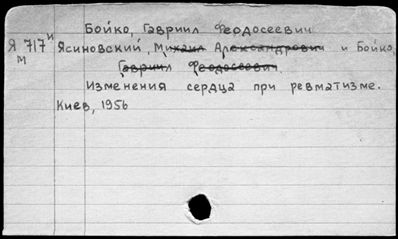 Бойко, Гавриил Феодосеевич
Я 717 и Ясиновский, Михаил Александрович и Бойко,
м Гавриил Феодосеевич.
Изменения сердца при ревматизме.
Киев, 1956